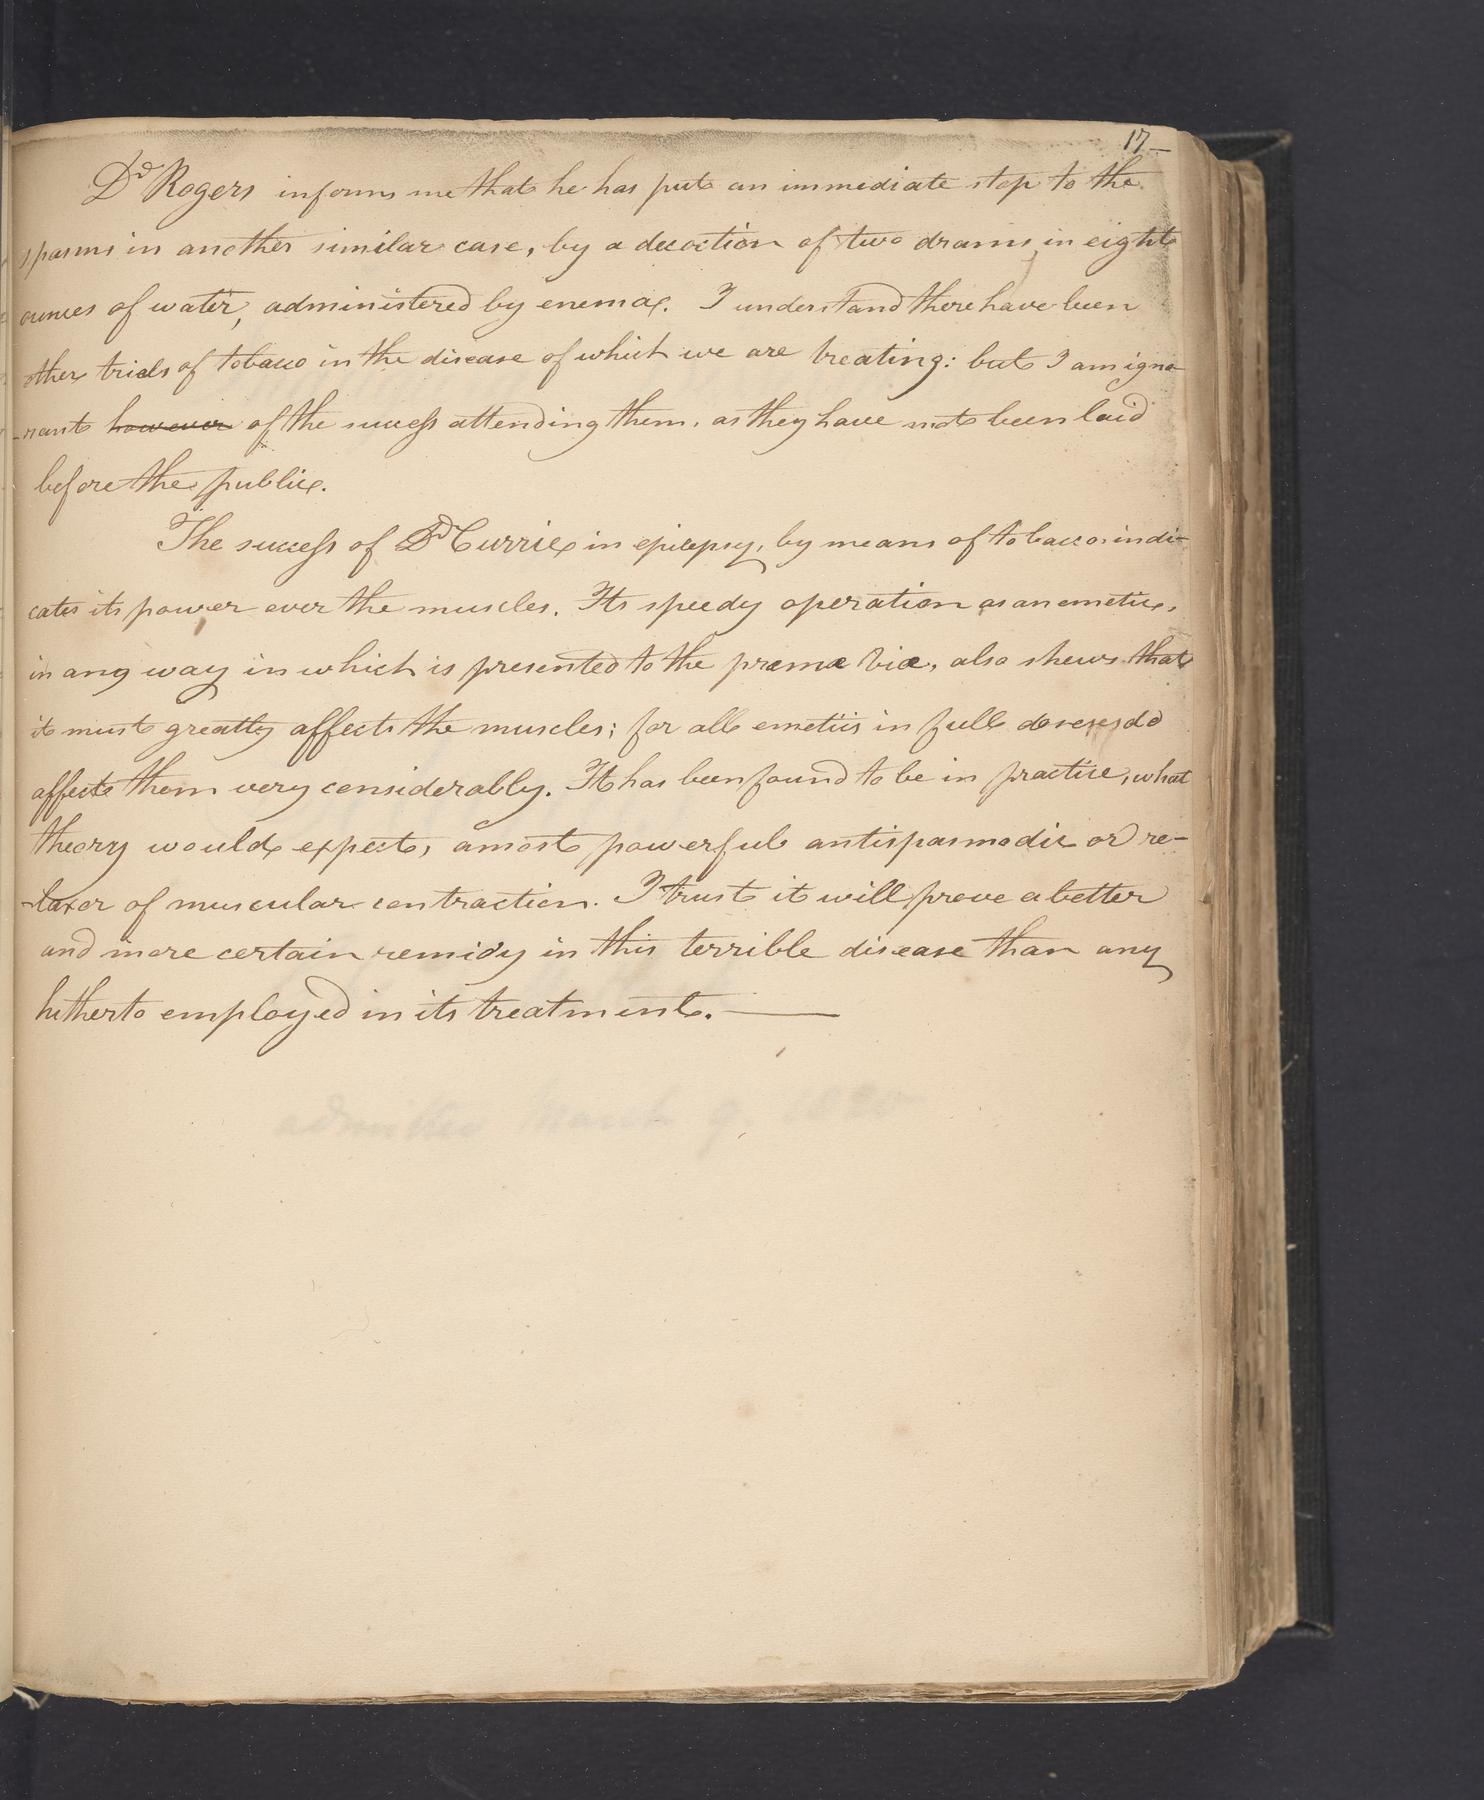 17
Dr Rogers informs me that he has put an immediate stop to the
spasms in another similar case, by a decoction of two drams in eight
ounces of water, administered by enema. I understand there have been
other trials of tobacco in the disease of which we are treating: but I am igno-
-rant however of the success attending them, as they have not been laid
before the public.
The success of Dr Currie in epilepsy, by means of tobacco indi-
cates its power over the muscles. Its speedy operation as an emetic,
in any way in which is presented to the premæ viæ, also shews that
it must greatly affect the muscles; for all emetics in full doses do
affect them very considerably. It has been found to be in practice, what
theory would expect, a most powerful antispasmodic or re-
-laxer of muscular contraction. I trust it will prove a better
and more certain remidy in this terrible disease than any
hitherto employed in its treatment.
admitted March 9,